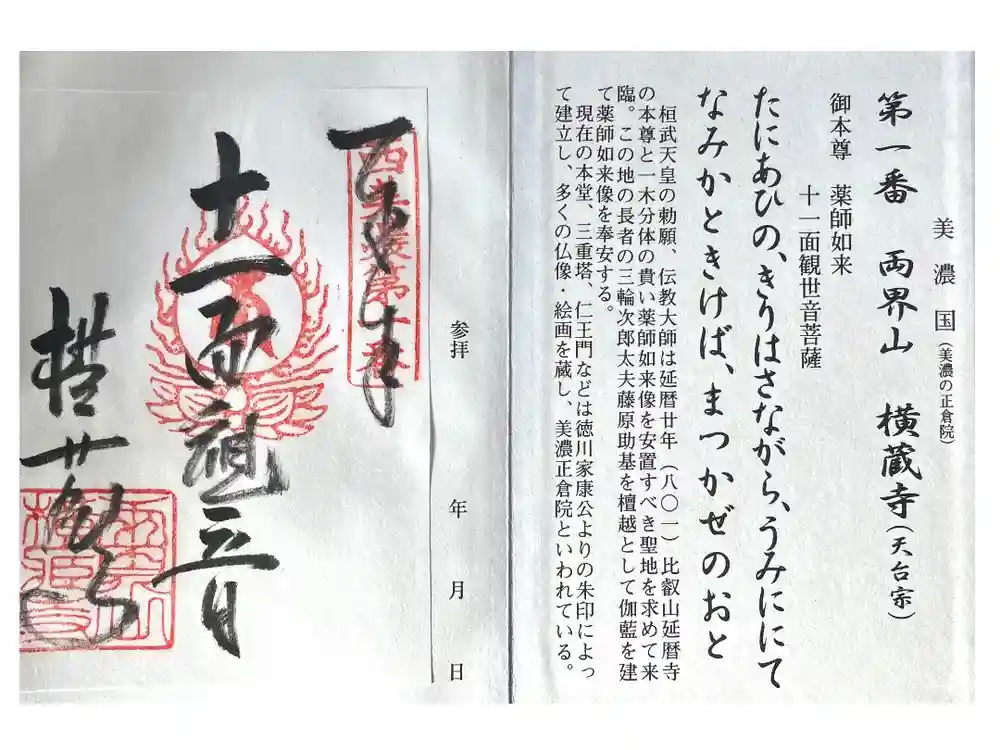 美濃国(美濃の正倉院)
第一番 両界山 横蔵寺(天台宗)
御本尊 薬師如来
十一面観世音菩薩
たにあひの、きりはさながら、うみににて
なみかときけば、まつかぜのおと
桓武天皇の勅願、伝教大師は延暦廿年(八〇一)比叡山延暦寺
の本尊と一木分体の貴い薬師如来像を安置すべき聖地を求めて来
臨。この地の長者の三輪次郎太夫藤原助基を檀越として伽藍を建
て薬師如来像を奉安する。
現在の本堂、三重塔、仁王門などは徳川家康公よりの朱印によっ
て建立し、多くの仏像・絵画を蔵し、美濃正倉院といわれている。
参拝 年 月 日
西美濃第一番
十一面観音
横蔵寺